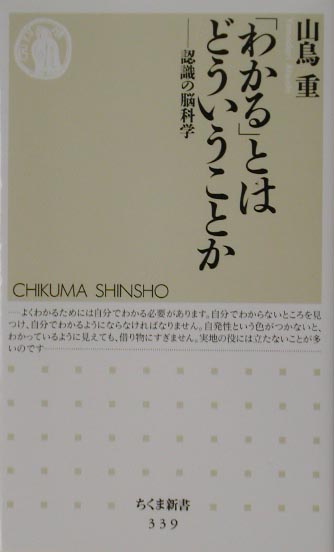 山鳥 重
「わかる」とは
どういうことか
──認識の脳科学
CHIKUMA SHINSHO
─よくわかるためには自分でわかる必要があります。自分でわからないところを見
つけ、自分でわかるようにならなければなりません。自発性という色がつかないと、
わかっているように見えても、借り物にすぎません。実地の役には立たないことが多
いのです
ちくま新書
339